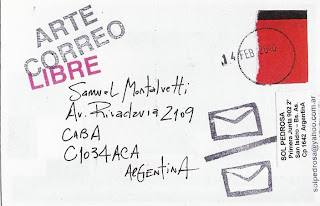 ARTE
CORREO
LIBRE
14 FEB
Samuel Montalvetti
Av. Rivadavia 2109
CABA
C1034ACA
ARgENtiNA
SOL PEDROSA
Primera Junta 902 2°
San Isidro - Bs. As.
Cp 1642 Argentina
solpedrosa@yahoo.com.ar